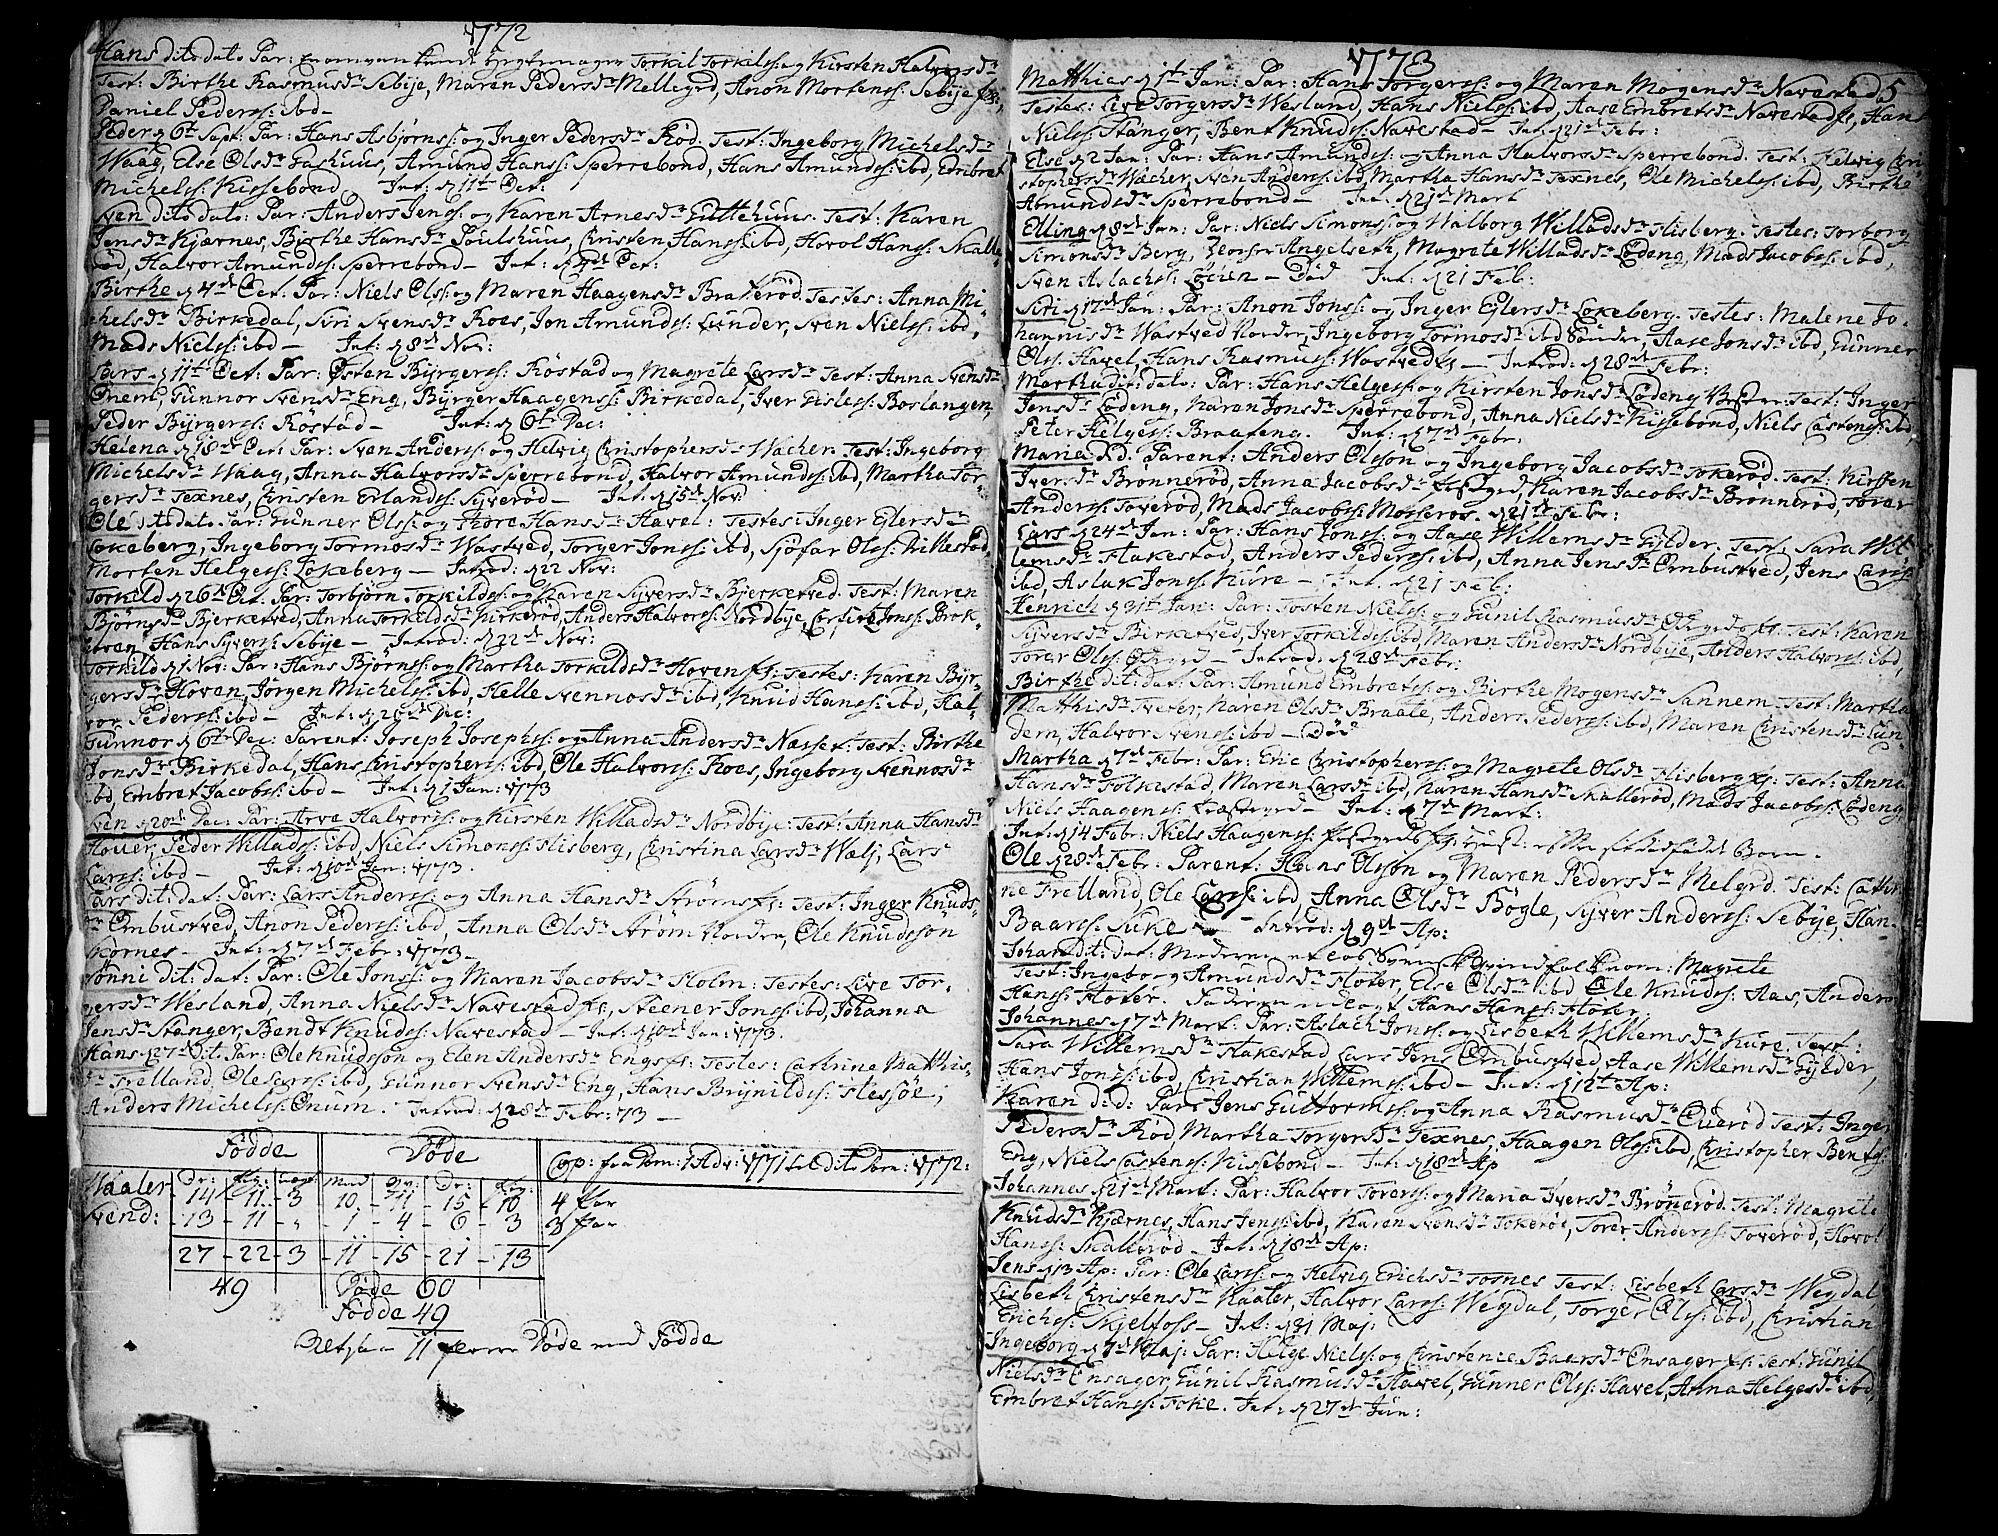 1772
Hans dito dato Par: Torkil Torkilss: og Kirsten Halvorsdr
Test: Birthe Rasmusdr Sebije, Maren Pedersdr Mellegrd, Anon Mortenss: Sebije
Daniel Pederss: ibd-
Peder d 6te Sept: Par: Hans Asbjørnss: og Inger Pedersdr Rød. Test: Ingeborg Michelsdr
Waag, Else Olsdr Gashuus, Amund Hanss: Sperrebond, Hans Amundss: ibd, Embret
Michelss: Kissebond. Int: d 11te Oct:
Sven dito dato: Par: Anders Jenss: og Karen Arnesdr Guttehuus. Test: Karen
Jensdr Kjærnes, Birthe Hansdr Poulshuus, Christen Hanss: ibd, Hovol Hanss: Skalle-
rød, Halvor Amundss: Sperrebond- Int: d 4de Oct:
Birthe d 4de Oct: Par: Niels Olss: og Maren Haagensdr Braterød. Testes: Anna Mi-
chelsdr Birkedal, Siri Svensdr Roes, Jon Amundss: Lunder, Sven Nielss: ibd.
Mads Nielss: ibd- Int: d 8de Nov:
Lars d 11te Oct: Par: Østen Byrgerss: Røstad og Magrete Larsdr Test: Anna Svensdr
Onem, Gunnor Svensdr Eng, Byrger Haagenss: Birkedal, Iver Gisless: Boslangen,
Peder Byrgerss: Røstad- Int: d 6te Dec:
Helena d 18de Oct: Par: Sven Anderss: og Helvig Christophersdr Wacher. Test: Ingeborg
Michelsdr Waag, Anna Halvorsdr Sperrebond, Halvor Amundss: ibd, Martha Tor-
gersdr Texnes, Christen Erlandss: Syverød- Int: d 15de Nov:
Ole dito dato. Par: Gunner Olss: og Thore Hansdr Havel: Testes: Inger Eylersdr
Lokeberg, Ingeborg Tormosdr Wastved, Torger Jonss: ibd, Sjøfar Olss: Rikestad,
Morten Helgess: Lokeberg- Introd: d 22 Nov:
Torkild d 26de Oct: Par: Torbjørn Torkildss: og Karen Syversdr Bjerketved. Test: Maren
Bjørnsdr Bjerketved, Anna Torkildsdr Kirkerød, Anders Halvorss: Nordbye, Jonss: Brek-
Hans Syverss: Sebije- Introd: d 22de Nov:
Torkild d 1 Nov: Par: Hans Bjørnss: og Martha Torkildsdr Hoven. Testes: Karen Byr-
gersdr Hoven, Jørgen Michelss: ibd, Helle Svennosdr ibd, Knud Hanss: ibd, Hal-
vor Pederss: ibd- Int: d 26de Dec:
Gunnor d 6te Dec: Parent: Joseph Josephss: og Anna Andersdr Næsset: Test: Birthe
Jonsdr Birkedal, Hans Christopherss: ibd, Ole Halvorss: Roes, Ingeborg Svennosdr
ibd, Embret Jacobss: ibd- Int: d 1 Jan: 1773
Sven d 20de Dec: Par: Arve Halvorss: og Kirsten Willadsdr Nordbye: Test: Anna Hansdr
Houer, Peder Willadss: ibd, Niels Simonss: Hisberg, Christina Larsdr Walj, Lars
Larss: ibd- Int: d 10de Jan: 1773.
Lars dit: dat: Par: Lars Anderss: og Anna Hansdr Strøm. Test: Inger Knuds-
dr Ombustved, Anon Pederss: ibd, Anna Olsdr Strøm Nordre, Ole Knudsson
Kornes- Int: d 7de Febr: 1773-
Sønni dit: dat: Par: Ole Jonss: og Maren Jacobsdr Holm: Testes: Live Tor-
gersdr Wesland, Anna Nielsdr Navestad, Steener Jonss: ibd, Johanna
Jensdr Stanger, Bendt Knudss: Navestad- Int: d 10de Jan: 1773.
Hans d 27de dit. Par: Ole Knudsson og Elen Andersdr Eng. Testes: Cathrine Matthis-
dr Frelland, Ole Larss: ibd, Gunnor Svensdr Eng, Hans Brynildss: Flesiøe,
Anders Michelss: Onum. Introd: d 28de Febr: 73-
Fødde Døde Cop: fra Dom: 1 Adv: 1771 til dito Dom: 1772:
Dr: Mænd Qv: Dr:
Vaaler - 14 - 11 - 3 10 - 11 - 15 - 10 4 Par
Svend: - 13 - 11 - „ - 1 - 4 - 6 - 3 3 Par
27 - 22 - 3 - 11 - 15 - 21 - 13
49 Døde 60
Fødde 49
Altsaa 11 flere Døde end Fødde
1773
5
Matthias d 1te Jan: Par: Hans Torgerss: og Maren Mogensdr Navestad
Testes: Live Torgersdr Wesland, Hans Nielss: ibd, Aase Embretsdr Navestad, Hans
Nielss: Stanger, Bent Knudss: Navestad- Int: d 21de Febr:
Else d 2 Jan: Par: Hans Amundss: og Anna Halvorsdr Sperrebond. Test: Helvig Chri-
stophersdr Wacher, Sven Anderss: ibd, Martha Hansdr Texnes, Ole Michelss: ibd, Birthe
Amundsdr Sperrebond- Int: d 21de Mart
Elling d 8de Jan: Par: Niels Simonss: og Walborg Willadsdr Hisberg. Testes: Torborg
Simonsdr Berg, Angelseth, Magrete Willadsdr Lødeng, Mads Jacobss: ibd,
Sven Aslachss: Løken- Død Int: d 21 Feb:
Siri d 17de Jan: Par: Anon Jonss: og Inger Eylersdr Lokeberg. Testes: Malene Jo-
hannisdr Wastved Nordre, Ingeborg Tormosdr ibd Søndre, Aase Jonsdr ibd, Gunner
Olss: Havel, Hans Rasmuss: Wastved- Introd: d 28de Febr:
Martha dit: dato: Par: Hans Helgess: og Kirsten Jonsdr Lødeng Vestre. Test: Inger
Jensdr Lødeng, Karen Jonsdr Sperrebond, Anna Nielsdr Kissebond, Niels Castenss: ibd
Peter Helgess: Braateng. Int: d 7de Febr:
Maria d.d. Parent: Anders Olsson og Ingeborg Jacobsdr Tokerød. Test: Kirsten
Iversdr Brønnerød, Anna Jacobsdr, Karen Jacobsdr Brønnerød, Torer
Anderss: Toverød, Mads Jacobss: Mosseros. d 21de Febr:
Lars d 24de Jan: Par: Hans Jonss: og Aase Willemsdr Gylder. Test: Sara Wil-
lemsdr Flakestad, Anders Pederss: ibd, Anna Jensdr Ombustved, Jens Larss:
ibd, Aslak Jonss: Kure- Int. d 21 Feb:
Henrich d 31te Jan: Par: Tosten Nielss: og Gunil Rasmusdr. Test: Karen
Syversdr Birketved, Iver Torkildss: ibd, Maren Andersdr Nordbye, Anders Halvorss: ibd,
Torer Olss: - Introd: d 28de Febr:
Birthe dit: dat: Par: Amund Embretss: og Birthe Mogensdr Sannem. Test: Martha
Matthisdr Tveter, Karen Olsdr Braate, Anders Pederss: ibd, Maren Christensdr Lun-
dern, Halvor Svenss: ibd- Død
Martha d 7de Febr: Par: Eric Christopherss: og Magrete Olsdr Hisberg. Test: Anna
Hansdr Folkestad, Maren Larsdr ibd, Karen Hansdr Skallerød, Mads Jacobss: Lødeng,
Niels Haagenss: - Int: d 7de Mart:
Int: d 14 Febr: Niels Haagenss: Barn.
Ole d 28de Febr: Parent: Hans Olsson og Maren Pedersdr Melgrd. Test: Cathri-
ne Frelland, Ole Larss: ibd, Anna Olsdr Bøgle, Syver Anderss: Sebije, Han-
Baarss: Suke - Introd: d 9de Ap:
Johan dit: dat: Moderen et løs Qvindfolk nom: Magrete
Test: Ingeborg Amundsdr Floter, Else Olsdr ibd Ole Knudss: Aas, Anders
Hanss: Floter. Faderen udlagt Hans Hanss: Floter,
Johannes d 7de Mart: Par: Aslach Jonss: og Lisbeth Willemsdr Kure, Test:
Sara Willemsdr Flakestad, Lars Jenss Ombustved, Aase Willemsdr Gylder,
Hans Jonss: ibd, Christian Willemss: ibd- Int: d 12te Ap:
Karen d:d: Par: Jens Guttormss: og Anna Rasmusdr Querød Test: Inger
Pedersdr Rød, Martha Torgersdr Texnes, Haagen Olss: ibd, Christopher Bentss:
Eng, Niels Castenss: Kissebond- Int: d 18de Ap
Johannes d 21de Mart: Par: Halvor Torerss: og Maria Iversdr Brønerød. Test: Magrete
Knudsdr Kjærnes, Hans Jenss: ibd, Karen Svensdr Tokerød, Torer Anderss: Toverød, Hovol
Hanss: Skallerød- Int: d 18de Ap:
Jens d 13 Ap: Par: Ole Larss: og Helvig Erichsdr Tosnes Test: Lisbeth Larsdr Wegdal,
Lisbeth Christensdr Vaaler, Halvor Larss: Wegdal, Torger Olss: ibd, Christian
Erichss: Skjelfoss- Int: d 31 Maj:
Ingeborg d 7de Maj: Par: Helge Nielss: og Christence Baarsdr Ensager. Test: Gunil
Nielsdr Ensager, Gunil Rasmusdr Havel, Gunner Olss: Havel, Anna Helgesdr ibd,
Embret Hanss: Foke. Int: d 27de Jun: